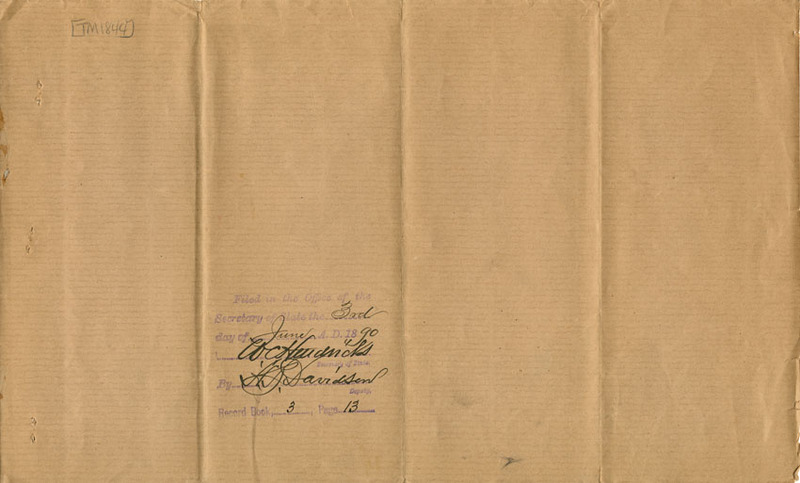 [TM1844]
Filed in the Office of the
Secretary of State the 3rd
day of June A. D. 1890
E. C. Hendricks
Secretary of State.
By Davidson
Deputy.
Record Book, 3, Page 13